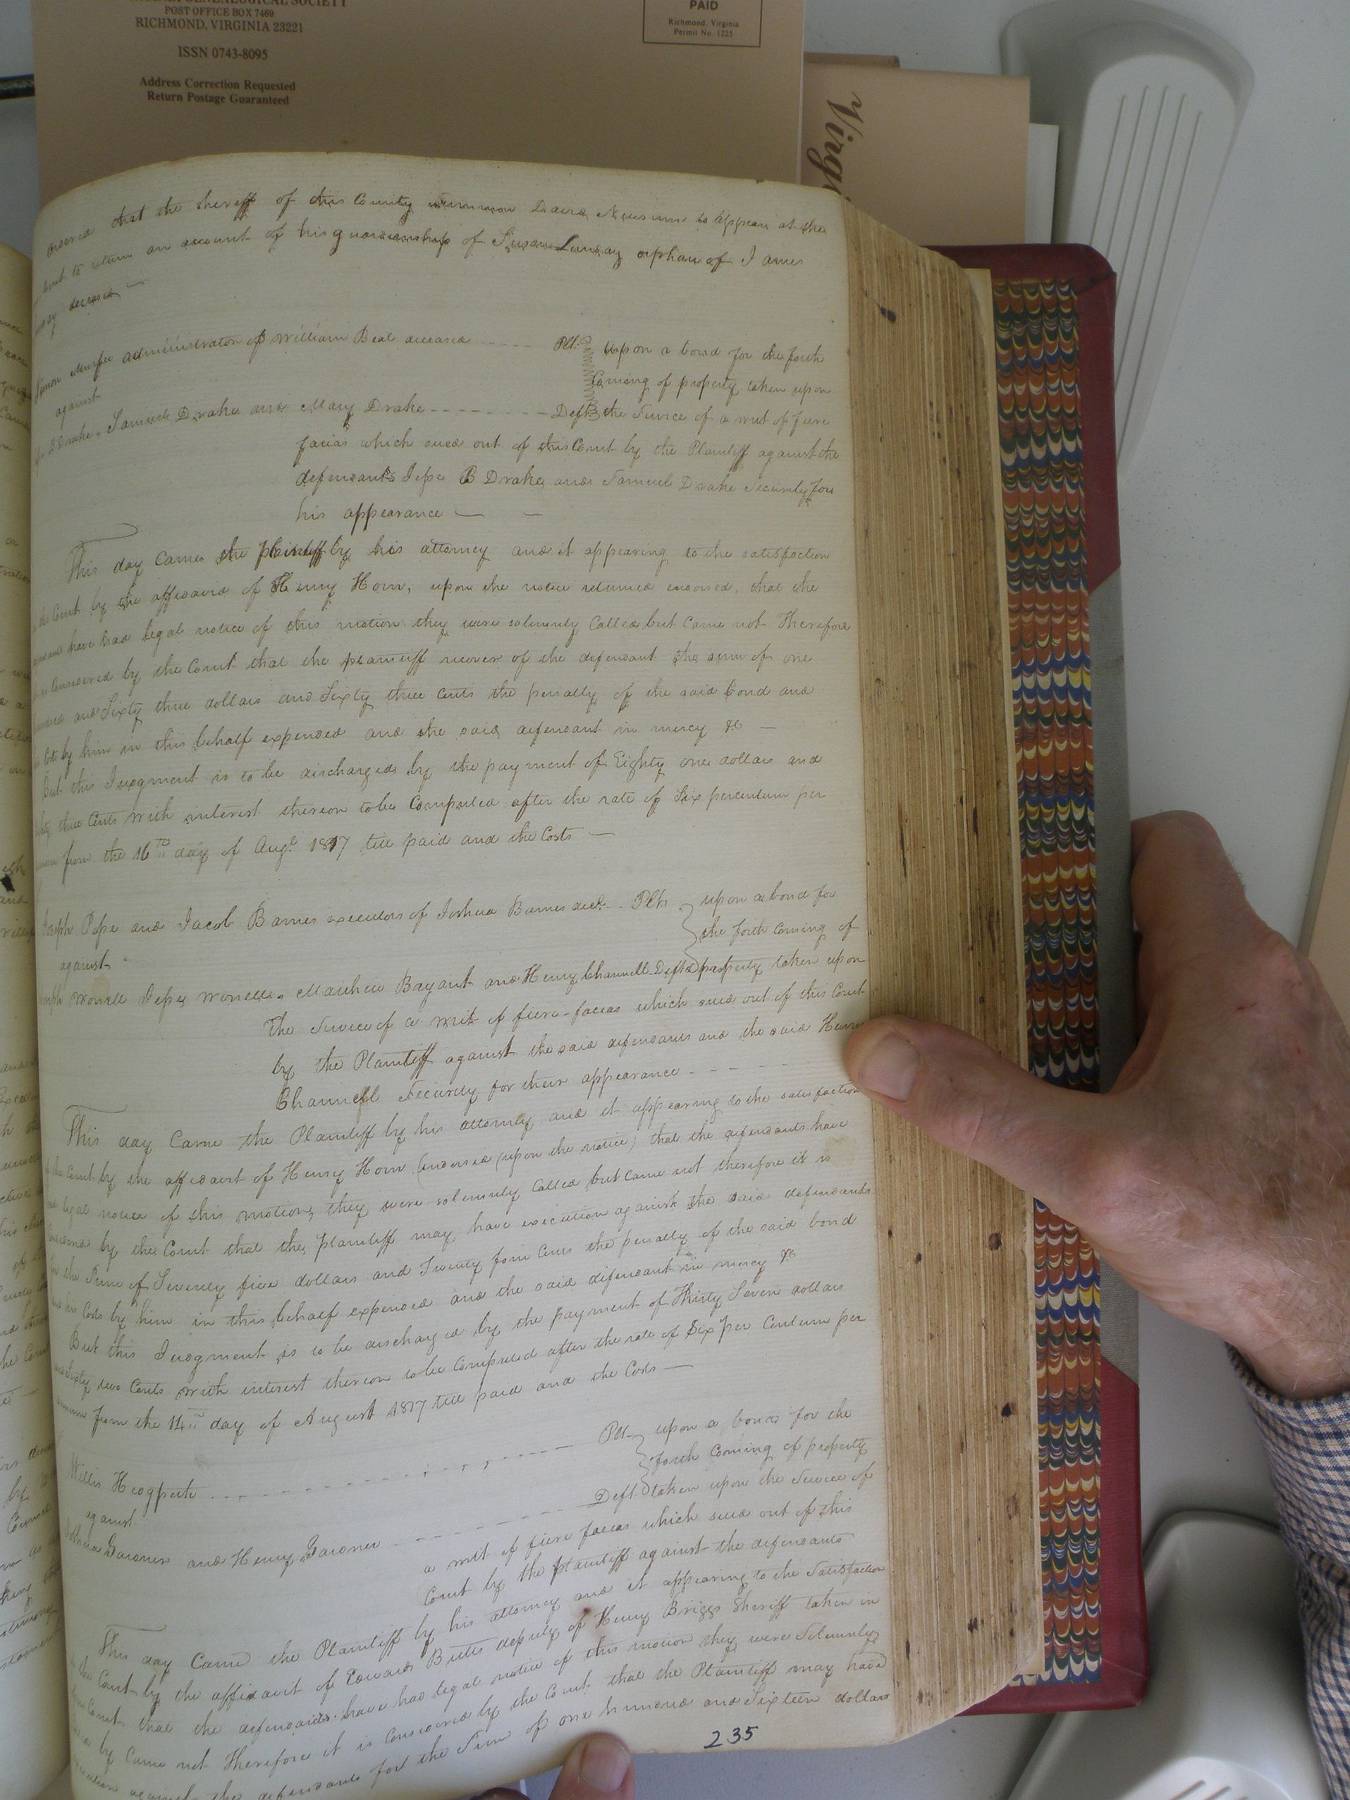 GENEALOGICAL SOCIETY
POST OFFICE BOX 7469
RICHMOND, VIRGINIA 23221
ISSN 0743-8095
Address Correction Requested
Return Postage Guaranteed
PAID
Richmond, Virginia
Permit No. 1225
Virg
that the Sheriff of this County summon David Newsum to appear at the
Court to return an account of his guardianship of Susan Lundy orphan of James
deceased
Simon Murfee administrator of William Beal deceased Plt. upon a bond for the forth
against Coming of property taken upon
Drake, Samuel Drake and Mary Drake Defts the Service of a writ of fiere
facias which sued out of this Court by the Plaintiff against the
defendants Jesse B Drake and Samuel Drake Security for
his appearance
This day came the plaintiff by his attorney and it appearing to the satisfaction
of the Court by the affidavid of Henry Horn, upon the notice returned endorsed, that the
have had legal notice of this motion they were solemnly called but came not Therefore
Considered by the Court that the plaintiff recover of the defendant the sum of one
hundred and Sixty three dollars and Sixty three cents the penalty of the said bond and
by him in this behalf expended and the said defendant in mercy &c
But this Judgment is to be discharged by the payment of Eighty one dollars and
three Cents with interest thereon to be Computed after the rate of Six percentum per
from the 16th day of Augt 1817 till paid and the Costs
Joseph Pope and Jacob Barnes executors of Joshua Barnes decd. Plts upon a bond for
against the forth coming of
Worrell Jesse Worrell, Matthew Bryant and Henry Channell Defts property taken upon
the Service of a writ of fiere-facias which sued out of this Court
by the Plaintiff against the said defendants and the said Henry
Channell Security for their appearance
This day Came the Plaintiff by his attorney and it appearing to the satisfaction
of the Court by the affidavit of Henry Horn (endorsed upon the notice) that the defendants have
legal notice of this motion, they were solemnly called but came not therefore it is
by the Court that the plaintiff may have execution against the said defendants
for the Sum of Seventy five dollars and Twenty four Cents the penalty of the said bond
Costs by him in this behalf expended and the said defendant in mercy &c
But this Judgment is to be discharged by the payment of Thirty Seven dollars
two Cents with interest thereon to be Computed after the rate of Six per Centum per
from the 14th day of August 1817 till paid and the Costs
Willis Plt upon a bond for the
against forth Coming of property
Gardner and Henry Gardner Defts taken upon the Service of
a writ of fiere facias which sued out of this
Court by the plaintiff against the defendants
This day Came the Plaintiff by his attorney and it appearing to the Satisfaction
of the Court by the affidavit of Edward Butts deputy of Henry Briggs Sheriff taken in
Court that the defendants have had legal notice of this motion they were Solemnly
Came not Therefore it is Considered by the Court that the Plaintiff may have
against the defendants for the Sum of one hundred and Sixteen dollars
235